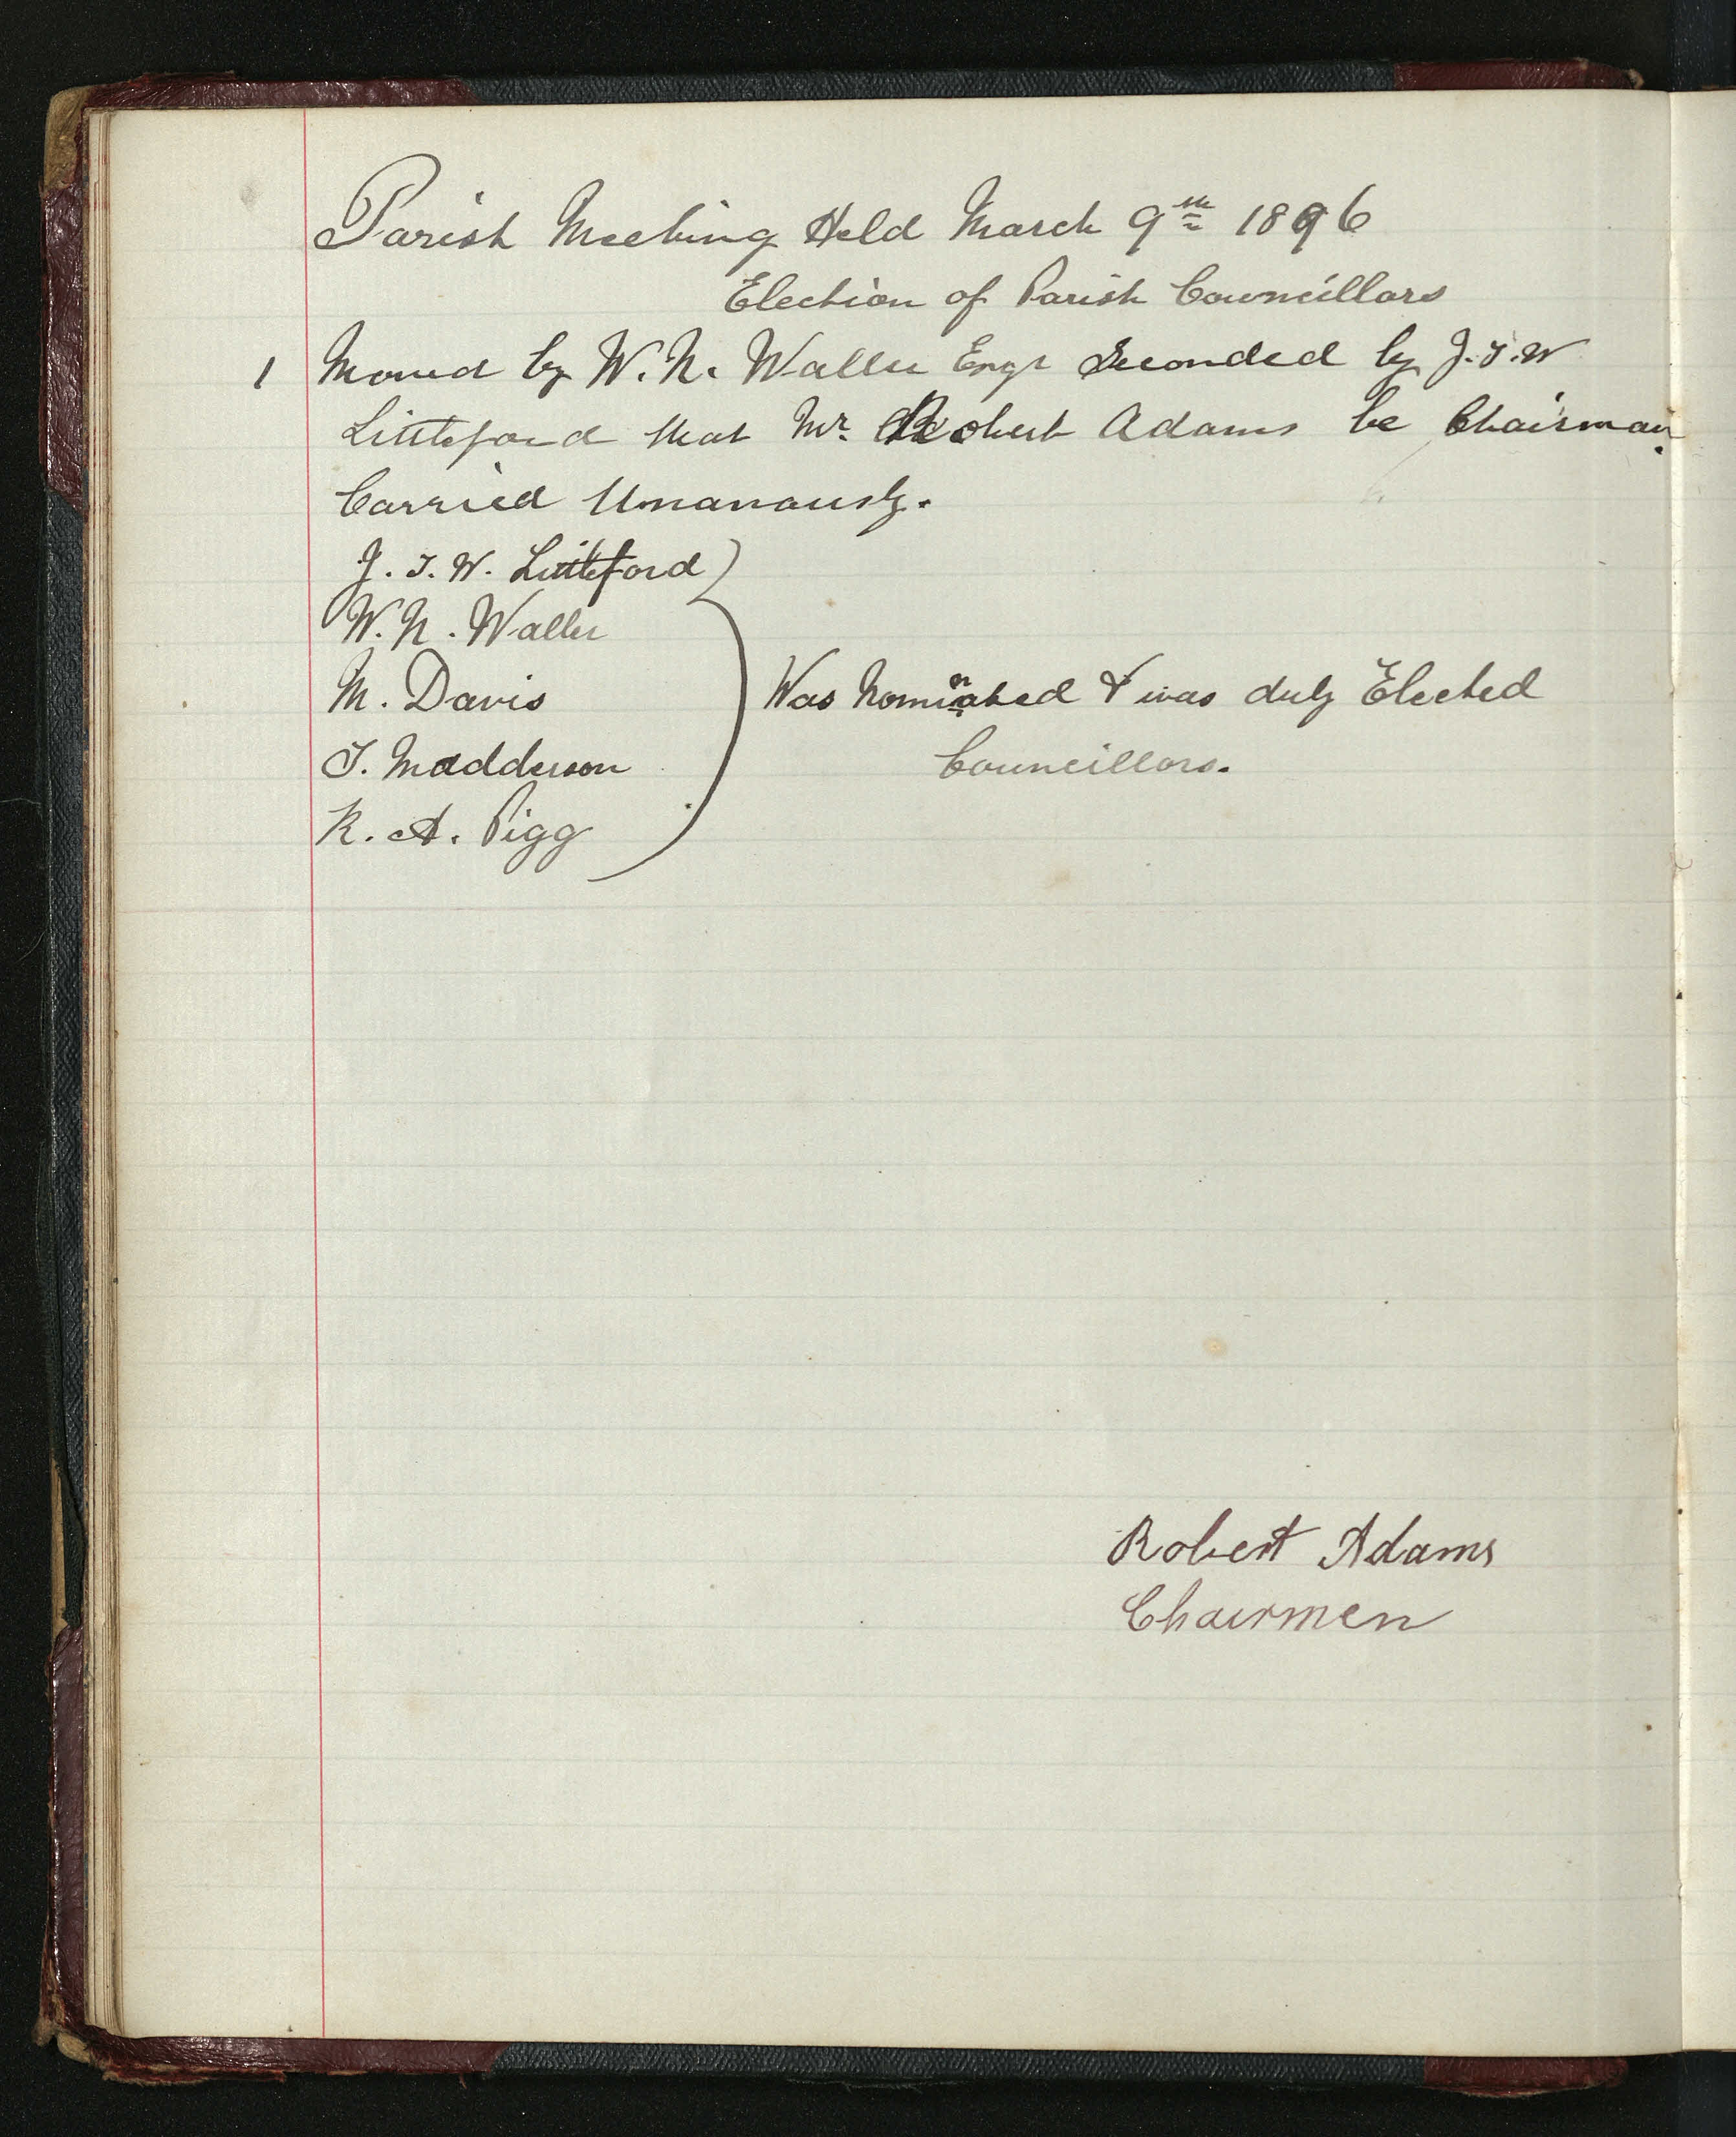 Parish Meeting Held March 9th 1896
Election of Parish Councillors
1 Moved by W. N. Waller Esqr Seconded by J. T. W
Littleford that Mr. Robert Adams be Chairman.
Carried Unanaously.
J. T. W. Littleford
W. N. Waller
M. Davis
T. Madderson
R. A. Pigg
Was Nominated & was duly Elected
Councillors.
Robert Adams
Chairmen